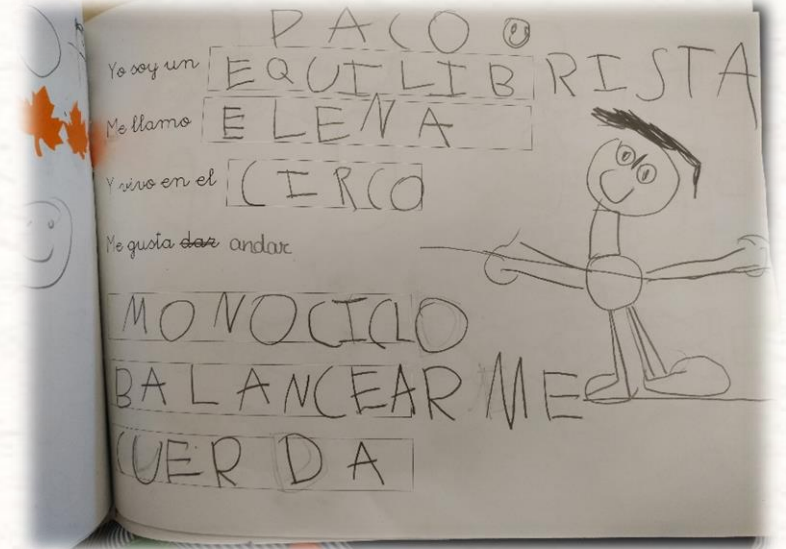 PACO
Yo soy un EQUILIBRISTA
Me llamo ELENA
Y vivo en el CIRCO
Me gusta dar andar
MONOCICLO
BALANCEARME
CUERDA